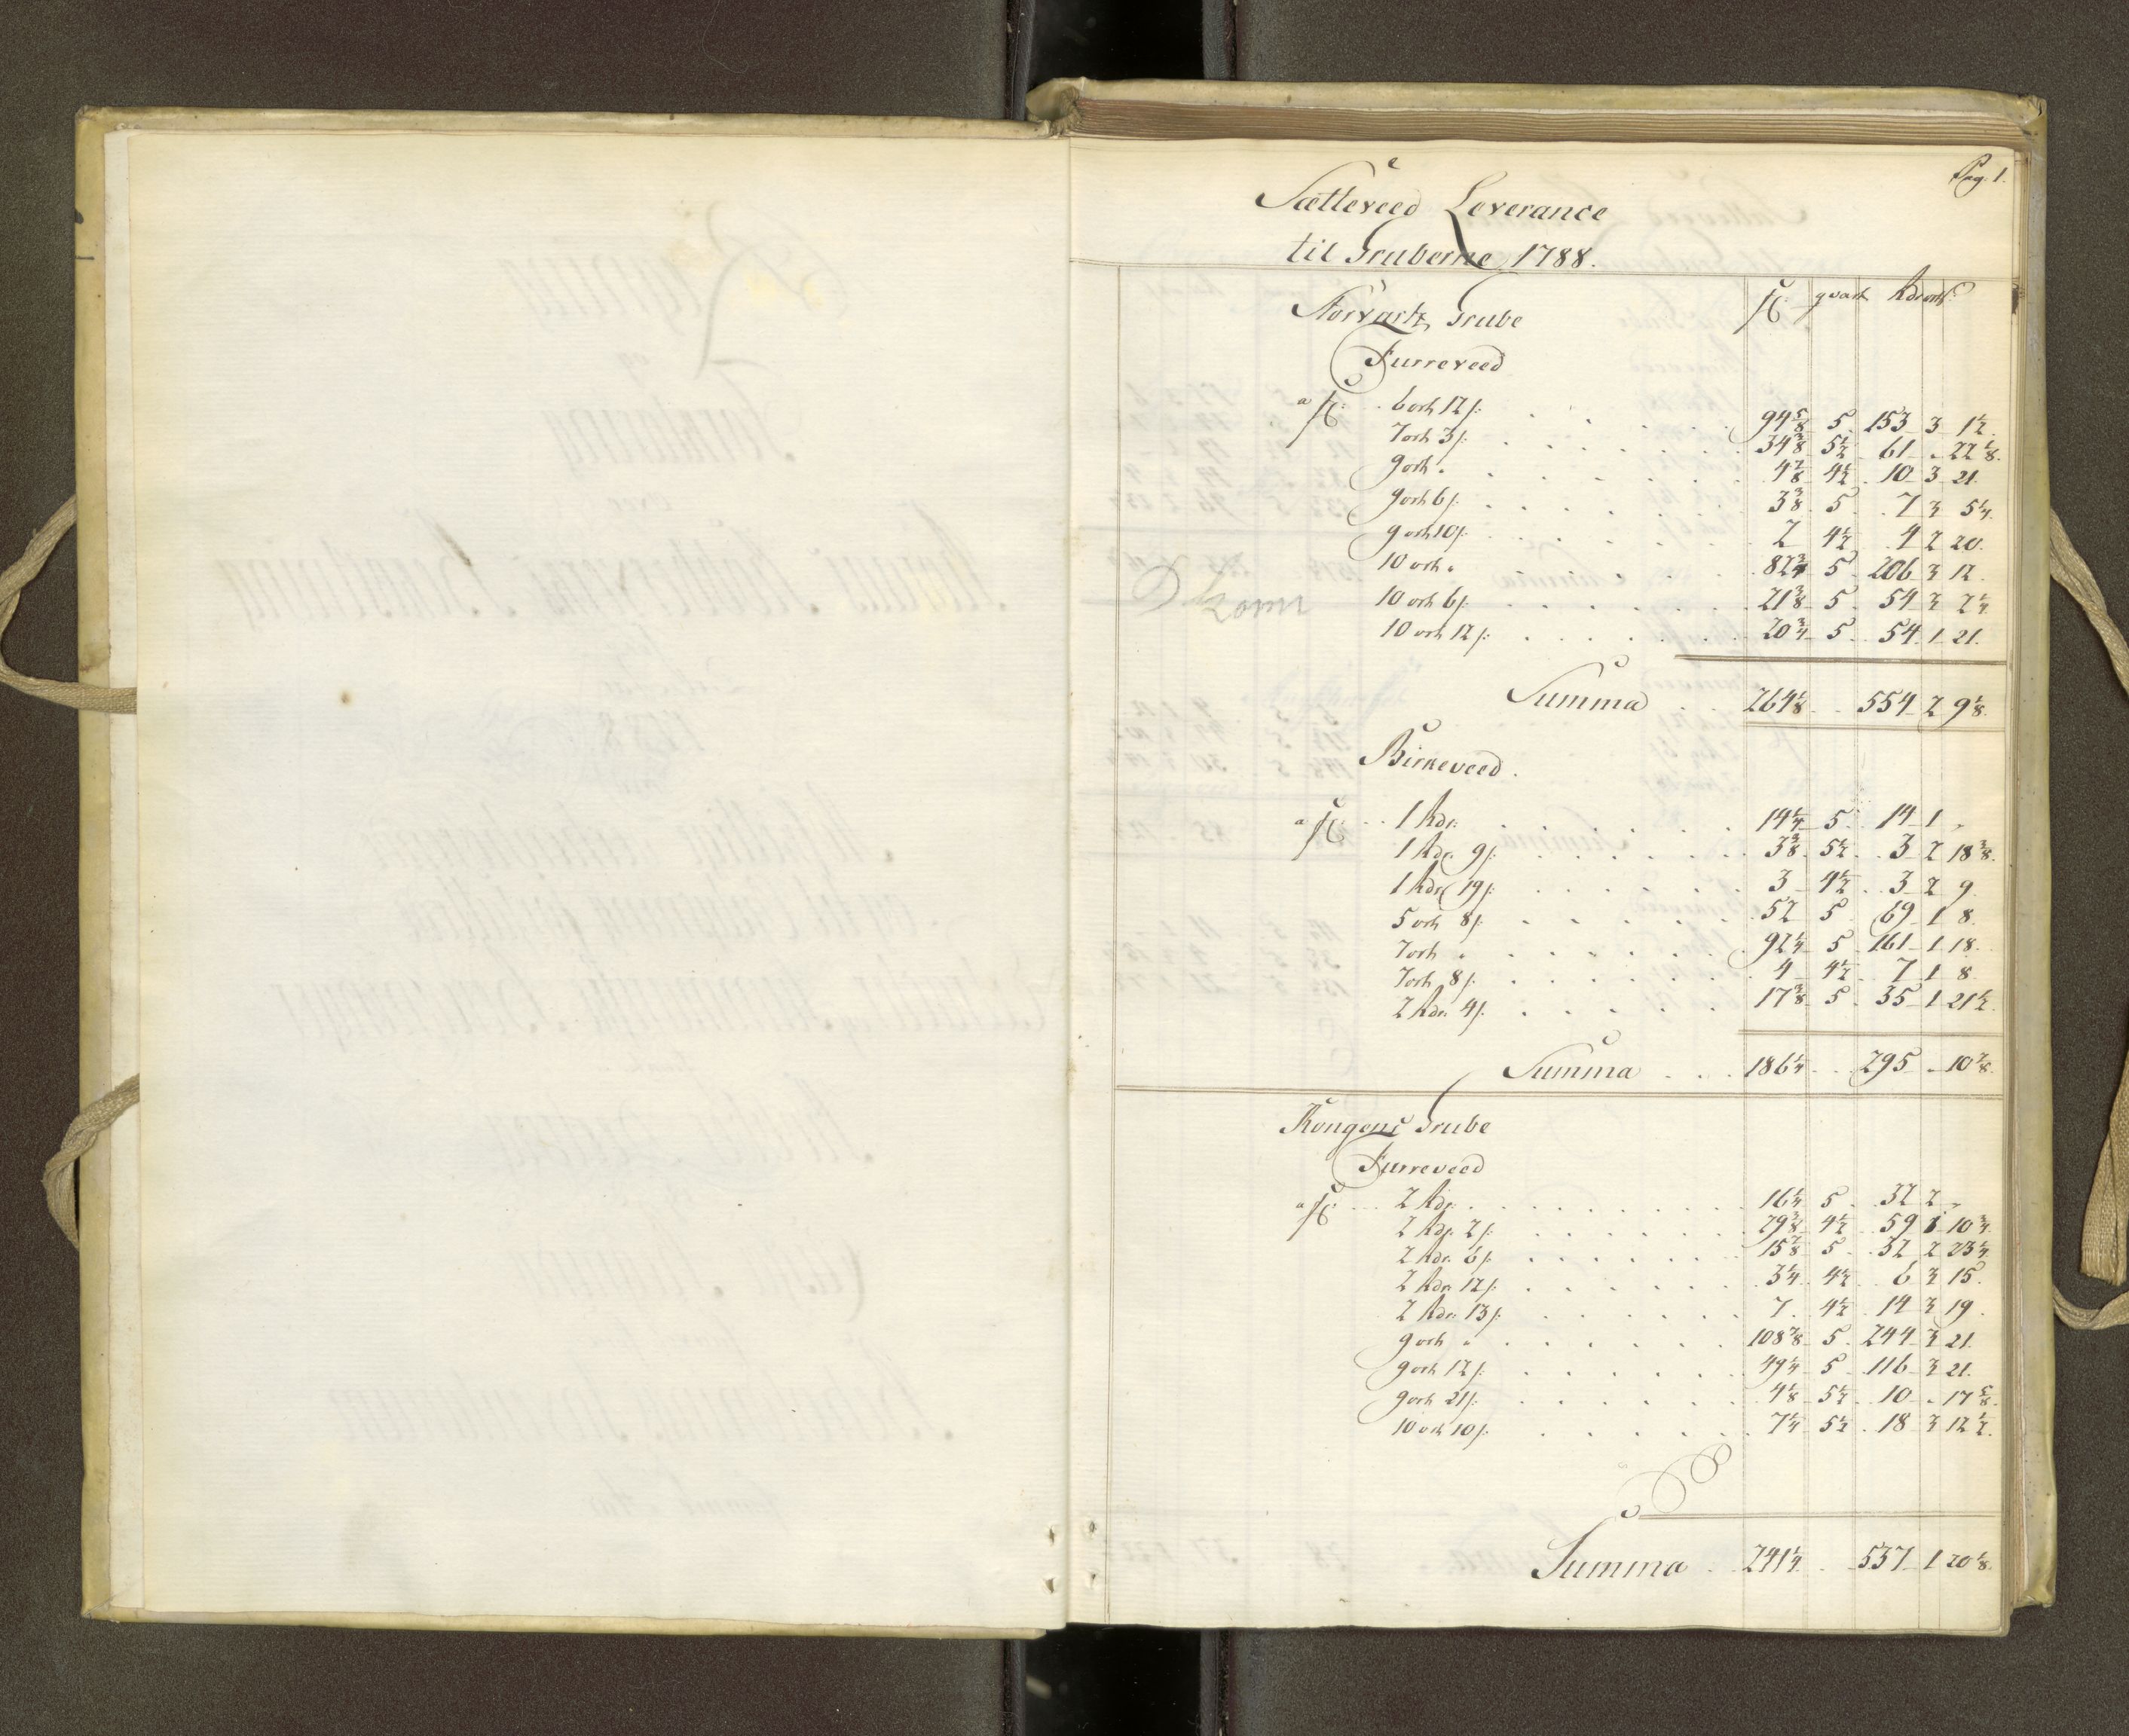 Pag. 1.
Sætteveed Leverance
til Gruberne 1788.
Storvartz Grube qvart Rdr ort s
Furreveed
a 6 ort 12 s: 94 5/8 5 153 3 1 1/2
7 ort 3 s: 34 3/8 5 1/2 61 . 22 1/8
9 ort . 4 7/8 4 1/2 10 3 21
9 ort 6 s: 3 3/8 5 7 3 5 1/4
9 ort 10 s: 2 4 1/2 4 2 20
10 ort . 82 3/4 5 206 3 12
10 ort 6 s: 21 3/8 5 54 3 2 1/4
10 ort 12 s: 20 3/4 5 54 1 21
Summa 264 1/8 554 2 9 1/8
Birkeveed.
a 1 Rdr: 14 1/4 5 14 1 "
1 Rdr. 9 s: 3 3/8 5 1/2 3 2 18 3/8
1 Rdr 19 s: 3 4 1/2 3 2 9
5 ort 8 s: 52 5 69 1 8
7 ort . 92 1/4 5 161 1 18
7 ort 8 s: 4 4 1/2 7 1 8
2 Rdr. 4 s: 17 3/8 5 35 1 21 1/2
Summa 186 1/4 295 . 10 7/8
Kongens Grube
Furreveed
a 2 Rdr. 16 1/4 5 32 2 "
2 Rdr. 2 s: 29 3/8 4 1/2 59 1 10 3/4
2 Rdr. 6 s: 15 7/8 5 32 2 23 1/4
2 Rdr. 12 s: 3 1/4 4 1/2 6 3 15
2 Rdr. 13 s: 7 4 1/2 14 3 19
9 ort " 108 7/8 5 244 3 21
9 ort 12 s: 49 1/4 5 116 3 21
9 ort 21 s: 4 1/8 5 1/2 10 . 17 5/8
10 ort 10 s: 7 1/4 5 1/2 18 3 12 1/2
Summa 241 1/4 537 1 20 1/8